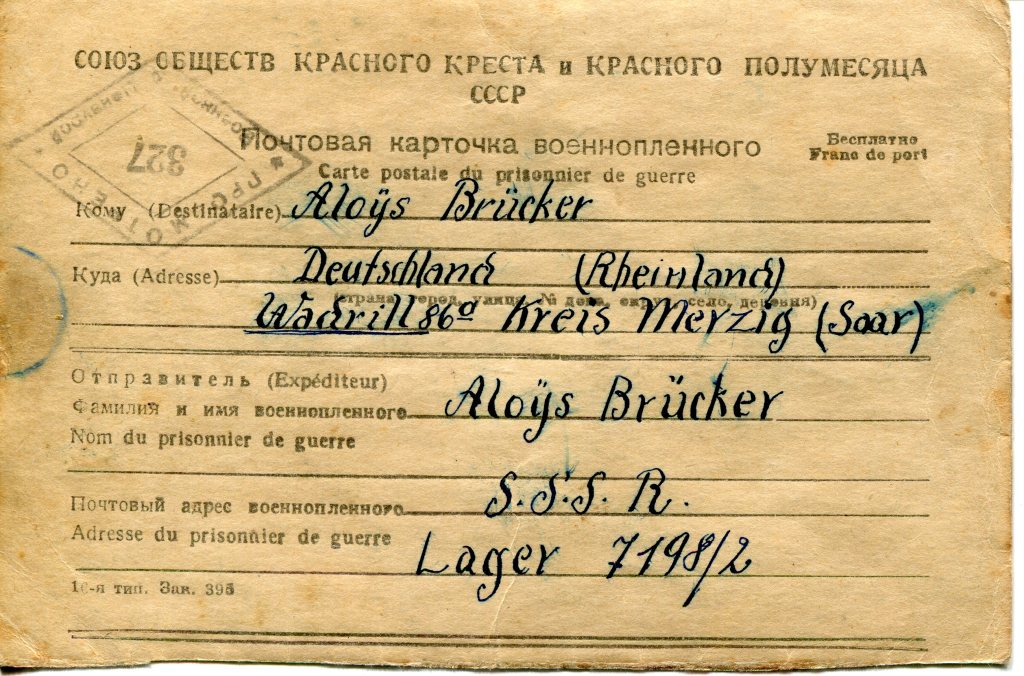 СОЮЗ ОБЩЕСТВ КРАСНОГО КРЕСТА и КРАСНОГО ПОЛУМЕСЯЦА
СССР
Почтовая карточка военнопленного
Бесплатно
Franc de port
Carte postale du prisonnier de guerre
Кому (Destinataire) Aloÿs Brücker
Куда (Adresse) Deutschland (Rheinland)
(страна, город, улица, № дома, округ, село, деревня)
Wadrill 86a Kreis Merzig (Saar)
Отправитель (Expéditeur)
Фамилия и имя военнопленного Aloÿs Brücker
Nom du prisonnier de guerre
Почтовый адрес военнопленного S.S.S.R.
Adresse du prisonnier de guerre Lager 7198/2
16-я тип. Зак. 395
327